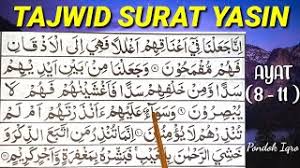 TAJWID SURAT YASIN
اِنَّا جَعَلْنَا فِيْٓ اَعْنَاقِهِمْ اَغْلٰلًا فَهِيَ اِلَى الْاَذْقَانِ
فَهُمْ مُّقْمَحُوْنَ ۞ وَجَعَلْنَا مِنْۢ بَيْنِ اَيْدِيْهِمْ
سَدًّا وَّمِنْ خَلْفِهِمْ سَدًّا فَاَغْشَيْنٰهُمْ فَهُمْ لَا
يُبْصِرُوْنَ ۞ وَسَوَآءٌ عَلَيْهِمْ ءَاَنْذَرْتَهُمْ اَمْ لَمْ
تُنْذِرْهُمْ لَا يُؤْمِنُوْنَ ۞ اِنَّمَا تُنْذِرُ مَنِ اتَّبَعَ الذِّكْرَ وَ
خَشِيَ الرَّحْمٰنَ بِالْغَيْبِ فَبَشِّرْهُ بِمَغْفِرَةٍ وَّاَجْرٍ كَرِيْمٍ ۞
AYAT
(8 - 11)
Pondok Iqro